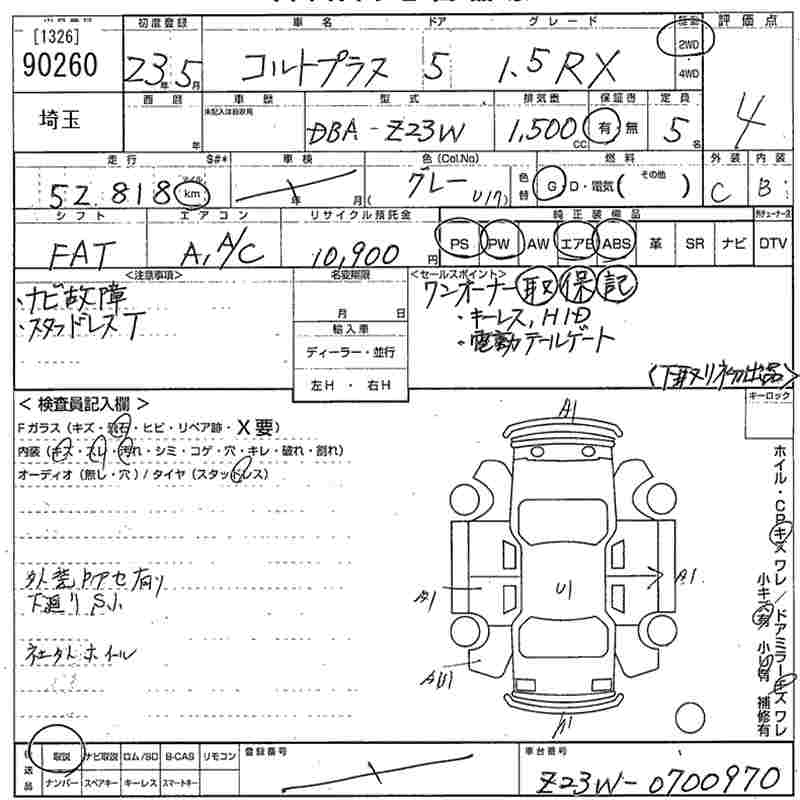 [1326]
90260
初度登録
車名
ドア
グレード
駆動
評価点
23年5月
コルトプラス
5
1.5RX
2WD
4WD
4
埼玉
西暦
年
車歴
未記入は自家用
型式
DBA-Z23W
排気量
1,500
CC
保証書
有・無
定員
5名
走行
S#*
車検
色(Col,No)
色替
燃料
その他
外装
内装
52,818
マイル
km
年 月
グレー
(U17)
G・D・電気( )
C
B
シフト
エアコン
リサイクル預託金
純正装備品
FAT
A,A/C
10,900円
PS PW AW エアB ABS 革 SR ナビ DTV
<注意事項>
・ナビ故障
・スタッドレスT
名変期限
月 日
輸入車
ディーラー・並行
左H ・ 右H
<セールスポイント>
ワンオーナー 取 保 記
・キーレス,HID
・電動テールゲート
<下取り初出品>
キーロック
<検査員記入欄>
Fガラス(キズ・飛石・ヒビ・リペア跡・X要)
内装(キズ・スレ・汚れ・シミ・コゲ・穴・キレ・破れ・割れ)
オーディオ(無し・穴)/タイヤ(スタッドレス)
下廻りS小
社外ホイール
A1
A1
A1
U1
A1
ホイル・CPキズ ワレ/ドアミラーキズ ワレ
小キズ有 小凹有 補修有
後送品
取説 ナビ取説 ロム/SD B-CAS リモコン
ナンバー スペアキー キーレス スマートキー
登録番号
車台番号
Z23W-0700970